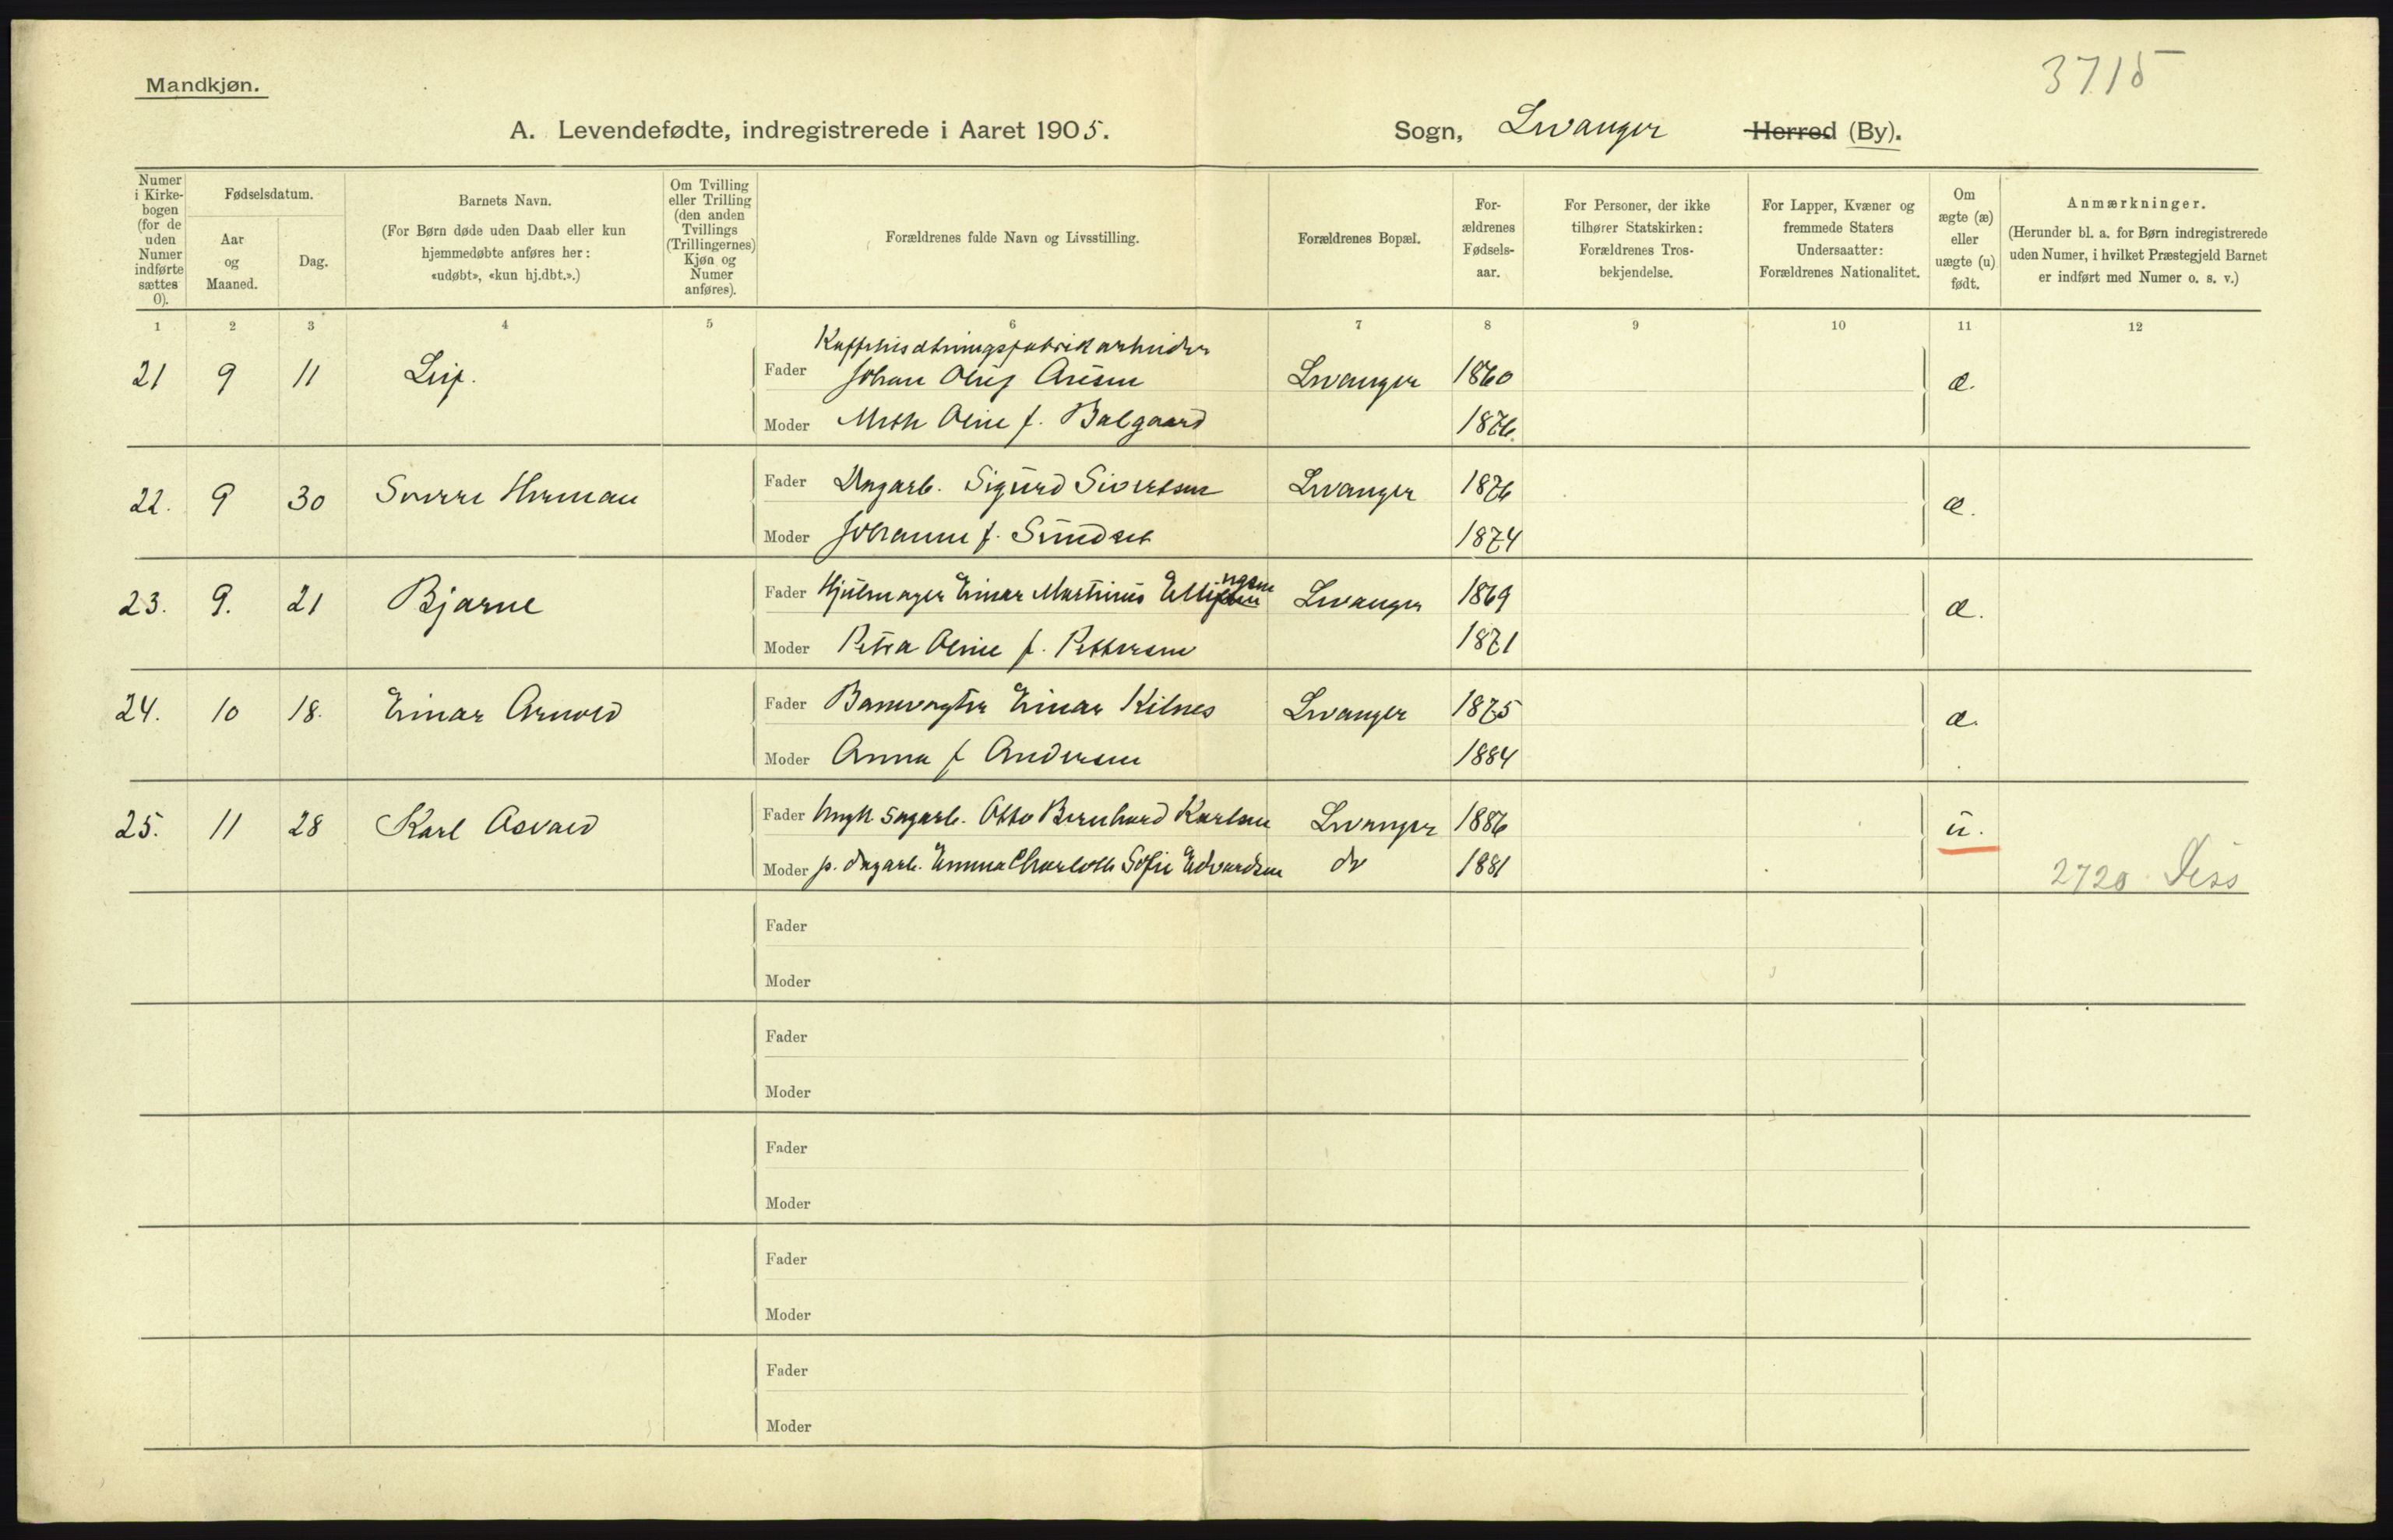 Mandkjøn.
3715
A. Levendefødte, indregistrerede i Aaret 1905.
Sogn, Levanger Herred (By).
Numer i Kirkebogen (for de uden Numer indførte sættes 0).
Fødselsdatum.
Aar og Maaned.
Dag.
Barnets Navn.
(For Børn døde uden Daab eller kun hjemmedøbte anføres her: «udøbt», «kun hj.dbt.».)
Om Tvilling eller Trilling (den anden Tvillings (Trillingernes) Kjøn og Numer anføres).
Forældrenes fulde Navn og Livsstilling.
Forældrenes Bopæl.
Forældrenes Fødselsaar.
For Personer, der ikke tilhører Statskirken: Forældrenes Trosbekjendelse.
For Lapper, Kvæner og fremmede Staters Undersaatter: Forældrenes Nationalitet.
Om ægte (æ) eller uægte (u) født.
Anmærkninger.
(Herunder bl. a. for Børn indregistrerede uden Numer, i hvilket Præstegjeld Barnet er indført med Numer o. s. v.)
1 2 3 4 5 6 7 8 9 10 11 12
21 9 11 Leif. Fader Johan Oluf Levanger 1860 æ.
Moder Mette Oline f. Balgaard 1876.
22. 9 30 Sverre Herman Fader Dagarb. Sigurd Sivertsen Levanger 1876 æ.
Moder Johanne f. Sundset 1874
23. 9. 21 Bjarne Fader Hjulmager Einar Martinus Ellingsen Levanger 1869 æ.
Moder Petra Oline f. Pettersen 1871
24. 10 18. Einar Arnold Fader Banevogter Einar Kilnes Levanger 1875 æ.
Moder Anna f Andersen 1884
25. 11 28 Karl Asvald Fader Ungk. sagarb. Otto Bernhard Karlsen Levanger 1886 u.
Moder p. dagarb. Emma Charlotte Sofie Edvardsen do 1881
2720
Fader
Moder
Fader
Moder
Fader
Moder
Fader
Moder
Fader
Moder